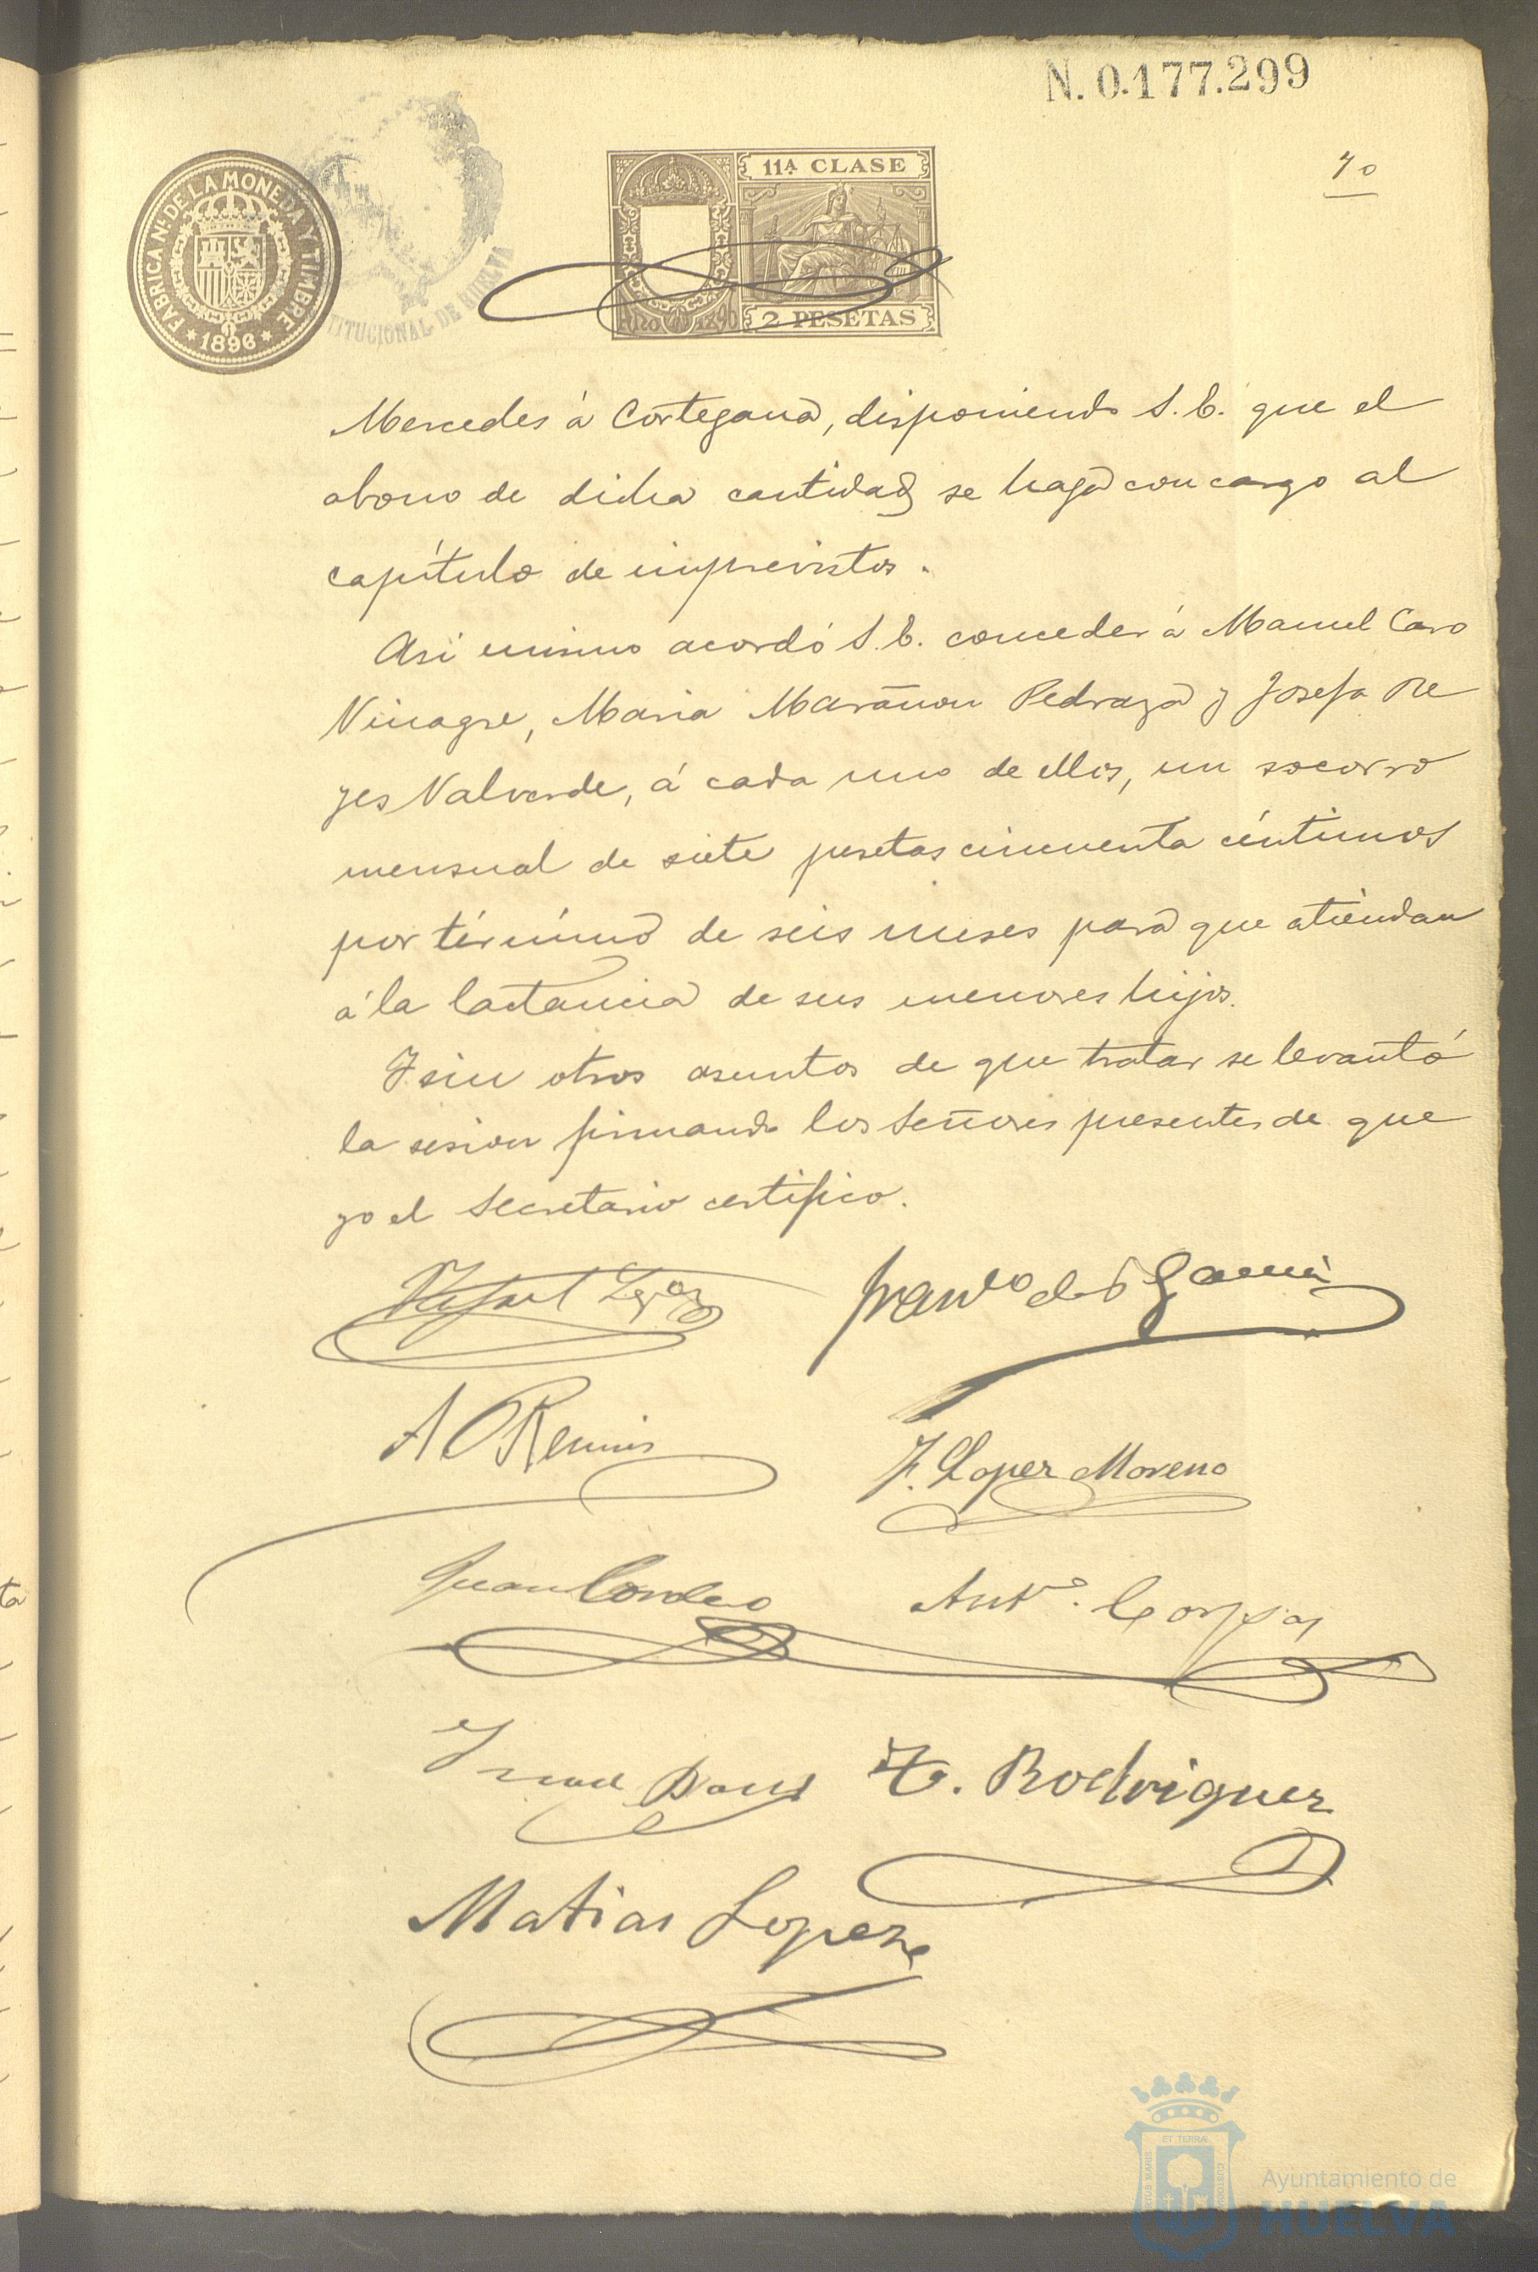 N. 0.177.299
70
FABRICA NL. DE LA MONEDA Y TIMBRE
* 1896 *
TITUCIONAL DE HUELVA
11A CLASE
2 PESETAS
Mercedes á Cortegana, disponiendo S. E. que el
abono de dicha cantidad se haga con cargo al
capítulo de imprevistos.
Asi mismo acordó S. E. conceder á Manuel Caro
Vinagre, Maria Marañon Pedraza y Josefa Re
yes Valverde, á cada uno de ellos, un socorro
mensual de siete pesetas cincuenta céntimos
por término de seis meses para que atiendan
á la lactancia de sus menores hijos.
Y sin otros asuntos de que tratar se levantó
la sesion firmando los Señores presentes de que
yo el Secretario certifico.
Rafael
Garcia
A O
F. Lopez Moreno
Juan Cordero
Anto.
Rodriguez
Matias Lopez
ET TERRÆ
Ayuntamiento de
HUELVA